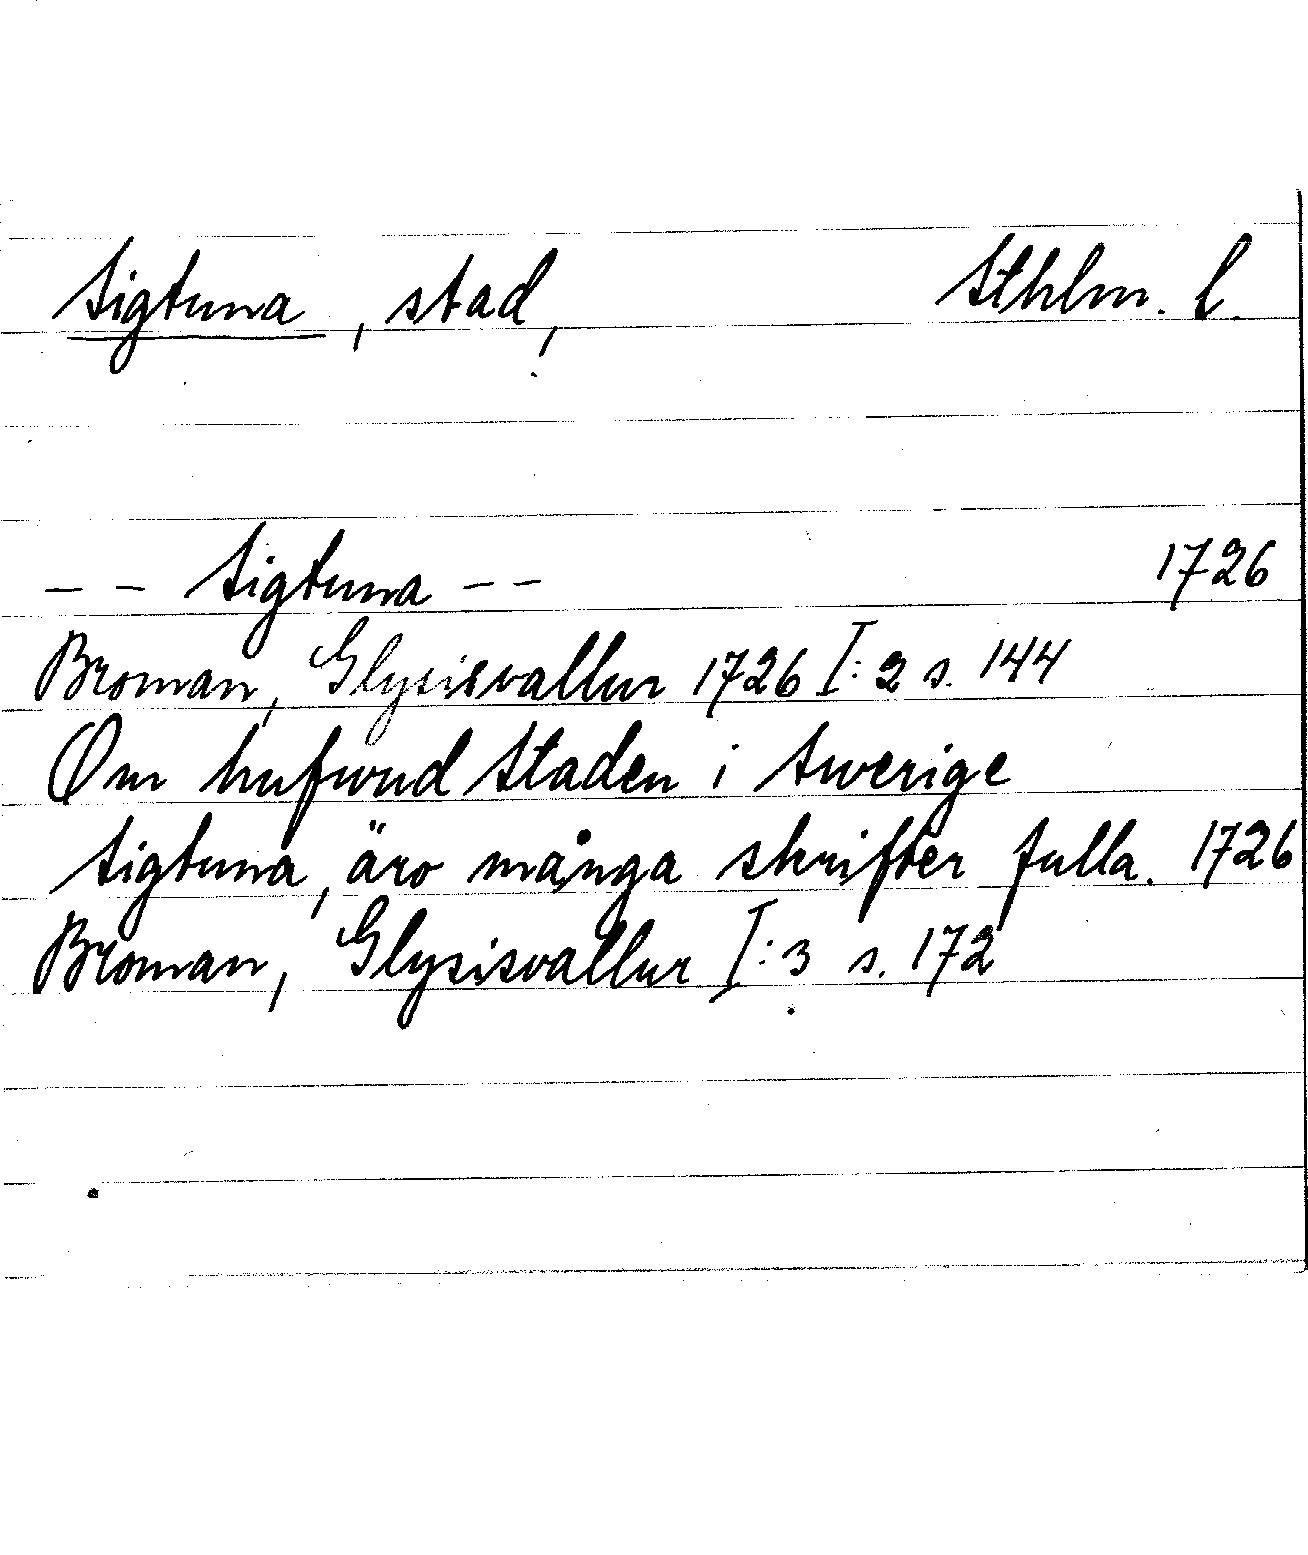 Sigtuna, stad, Sthlm. l.
- - Sigtuna - - 1726
Broman, Glysisvallur 1726 I:2 s. 144
Om hufwud Staden i Swerige
Sigtuna, äro många skrifter fulla. 1726
Broman, Glysisvallur I:3 s. 172